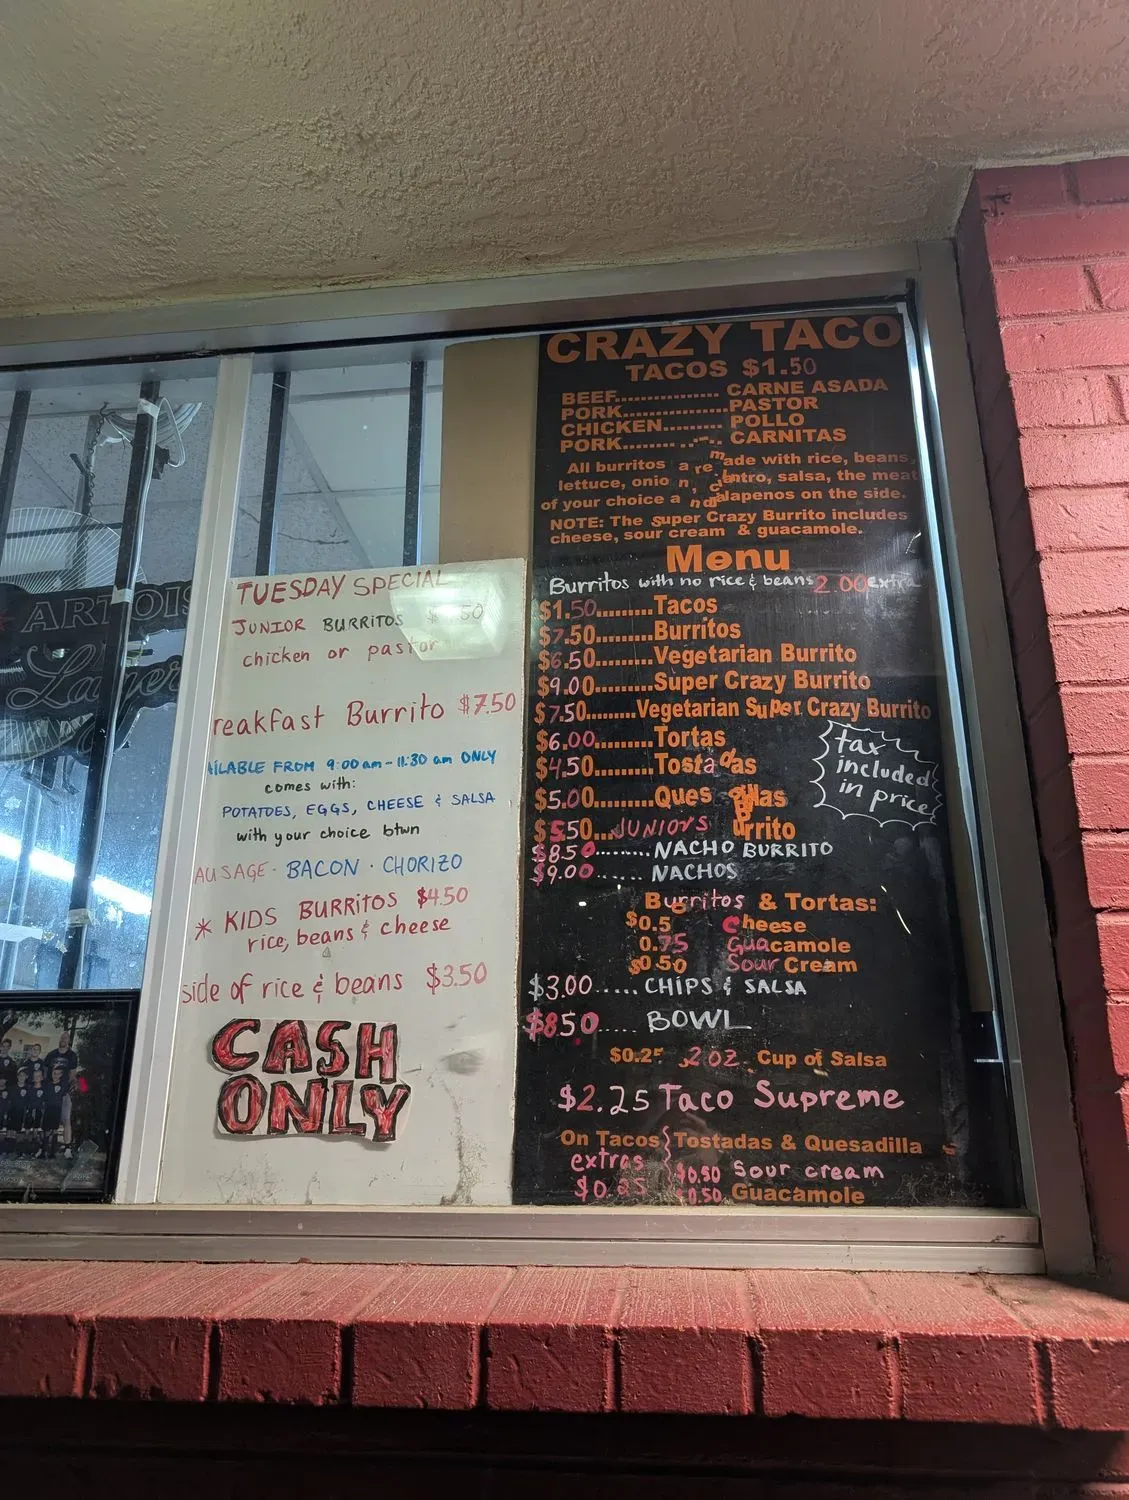 ARTOIS
Lager
TUESDAY SPECIAL
JUNIOR BURRITOS
chicken or pastor
reakfast Burrito $7.50
AILABLE FROM 9:00 am - 11:30 am ONLY
comes with:
POTATOES, EGGS, CHEESE & SALSA
with your choice btwn
AUSAGE · BACON · CHORIZO
* KIDS BURRITOS $4.50
rice, beans & cheese
side of rice & beans $3.50
CASH
ONLY
CRAZY TACO
TACOS $1.50
BEEF................ CARNE ASADA
PORK.................PASTOR
CHICKEN......... POLLO
PORK........ ..-.. CARNITAS
All burritos are made with rice, beans,
lettuce, onion, cilantro, salsa, the meat
of your choice and jalapenos on the side.
NOTE: The Super Crazy Burrito includes
cheese, sour cream & guacamole.
Menu
Burritos with no rice & beans 2.00 extra
$1.50.........Tacos
$7.50.........Burritos
$6.50.........Vegetarian Burrito
$9.00.........Super Crazy Burrito
$7.50.........Vegetarian Super Crazy Burrito
$6.00.........Tortas
$4.50.........Tostadas
$5.00.........Quesadillas
$5.50...JUNIORS urrito
$8.50.........NACHO BURRITO
$9.00......NACHOS
tax
included
in price
Burritos & Tortas:
$0.5 Cheese
0.75 Guacamole
$0.50 Sour Cream
$3.00.....CHIPS & SALSA
$8.50.....BOWL
$0.25 2 oz. Cup of Salsa
$2.25 Taco Supreme
On Tacos } Tostadas & Quesadilla
extras $0.50 Sour cream
$0.25 $0.50 Guacamole